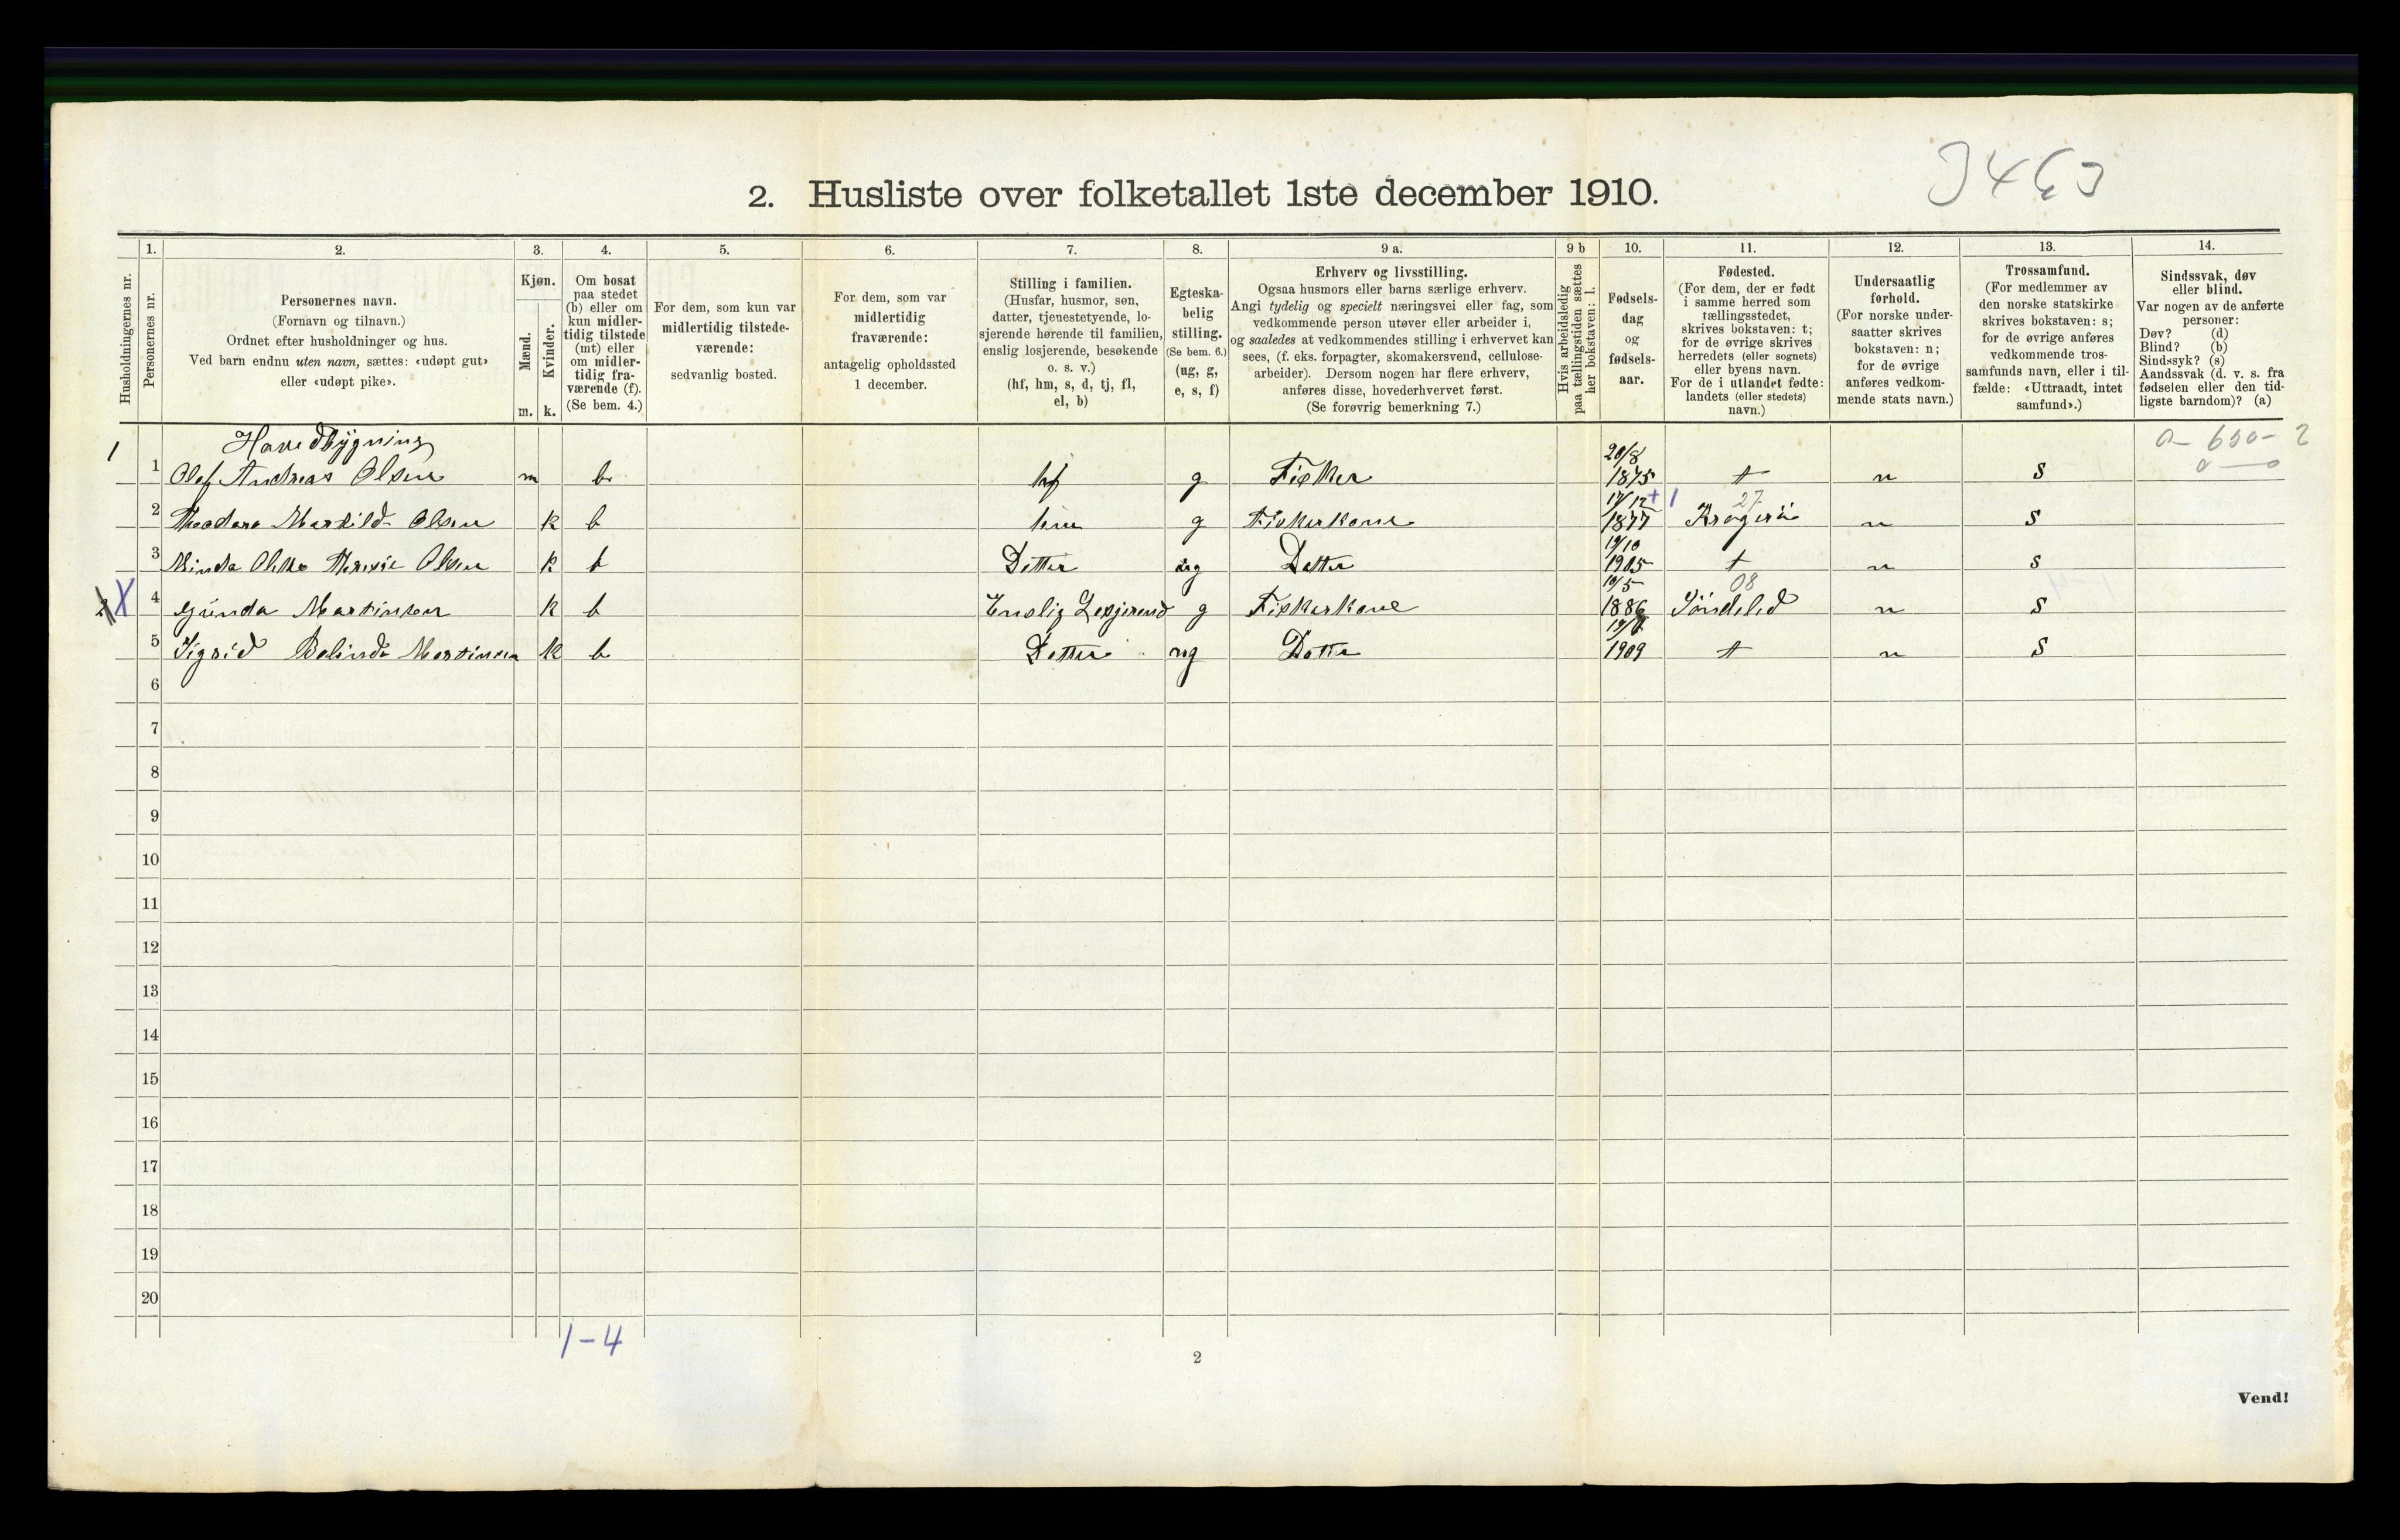 3463
2. Husliste over folketallet 1ste december 1910.
Husholdningernes nr.
1.
Personernes nr.
2.
Personernes navn.
(Fornavn og tilnavn.)
Ordnet efter husholdninger og hus.
Ved barn endnu uten navn, sættes: «udøpt gut»
eller «udøpt pike».
3.
Kjøn.
Mænd.
Kvinder.
m. k.
4.
Om bosat
paa stedet
(b) eller om
kun midler-
tidig tilstede
(mt) eller
om midler-
tidig fra-
værende (f).
(Se bem. 4.)
5.
For dem, som kun var
midlertidig tilstede-
værende:
sedvanlig bosted.
6.
For dem, som var
midlertidig
fraværende:
antagelig opholdssted
1 december.
7.
Stilling i familien.
(Husfar, husmor, søn,
datter, tjenestetyende, lo-
sjerende hørende til familien,
enslig losjerende, besøkende
o. s. v.)
(hf, hm, s, d, tj, fl,
el, b)
8.
Egteska-
belig
stilling.
(Se bem. 6.)
(ug, g,
e, s, f)
9 a.
Erhverv og livsstilling.
Ogsaa husmors eller barns særlige erhverv.
Angi tydelig og specielt næringsvei eller fag, som
vedkommende person utøver eller arbeider i,
og saaledes at vedkommendes stilling i erhvervet kan
sees, (f. eks. forpagter, skomakersvend, cellulose-
arbeider). Dersom nogen har flere erhverv,
anføres disse, hovederhvervet først.
(Se forøvrig bemerkning 7.)
9 b
Hvis arbeidsledig
paa tællingstiden sættes
her bokstaven: l.
10.
Fødsels-
dag
og
fødsels-
aar.
11.
Fødested.
(For dem, der er født
i samme herred som
tællingsstedet,
skrives bokstaven: t;
for de øvrige skrives
herredets (eller sognets)
eller byens navn.
For de i utlandet fødte:
landets (eller stedets)
navn.)
12.
Undersaatlig
forhold.
(For norske under-
saatter skrives
bokstaven: n;
for de øvrige
anføres vedkom-
mende stats navn.)
13.
Trossamfund.
(For medlemmer av
den norske statskirke
skrives bokstaven: s;
for de øvrige anføres
vedkommende tros-
samfunds navn, eller i til-
fælde: «Uttraadt, intet
samfund».)
14.
Sindssvak, døv
eller blind.
Var nogen av de anførte
personer:
Døv? (d)
Blind? (b)
Sindssyk? (s)
Aandssvak (d. v. s. fra
fødselen eller den tid-
ligste barndom)? (a)
Havedbygning
0 - 650 - 2
0 — 0
1 1 Olef Andreas Olsen m b hf g Fisker 20/8 1875 t n s
2 Theodara Markild Olsen k b hm g Fiskerkone 17/12 1877 27 Kragerö n s
3 Minda Olette Theresie Olsen k b Dotter ug Dotter 19/10 1905 t n s
4 Gunda Martinsen k b Enslig Losjerend g Fiskerkone 10/5 1886 08 Söndeled n s
5 Sigrid Belinda Martinsen k b Dotter ug Dotter 1909 t n s
6
7
8
9
10
11
12
13
14
15
16
17
18
19
20
1-4
2
Vend!